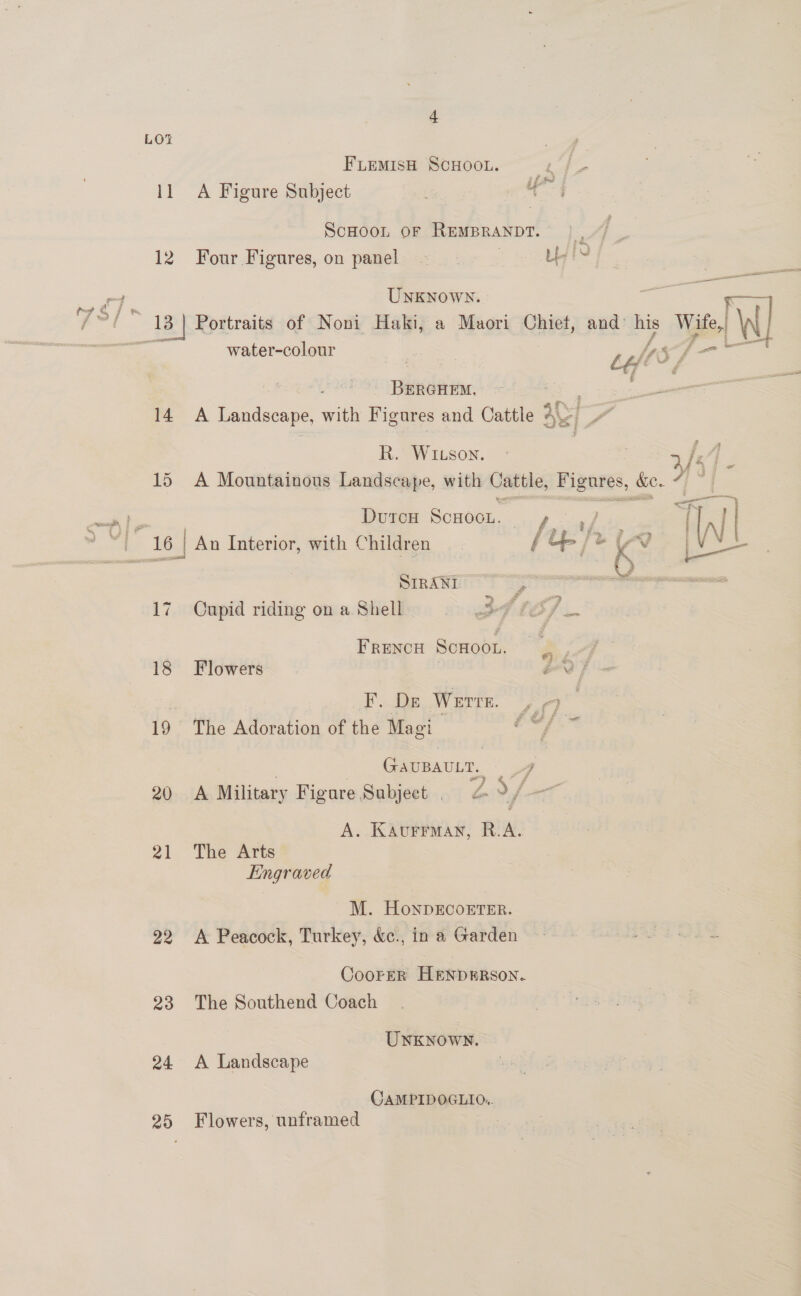 4
LOT
FLEMISH SCHOOL.
11 A Figure Subject
SCHOOL OF REMBRANDT.
12 Four Figures, on panel
UNKNOWN.
75/- 13 Portraits of Noni Haki, a Maori Chief, and his Wife, W
water-colour
BERGHEM.
14 A Landscape, with Figures and Cattle
R. WILSON.
15 A Mountainous Landscape, with Cattle, Figures, &c.
DUTCH SCHOOL.
50/- 16 An Interior, with Children W
SIRANI
17 Cupid riding on a Shell
FRENCH SCHOOL.
18 Flowers
F. DE WETTE.
19 The Adoration of the Magi
GAUBAULT.
20 A Military Figure Subject
A. KAUFFMAN, R.A.
21 The Arts
Engraved
M. HONDECOETER.
22 A Peacock, Turkey, &c., in a Garden
COOPER HENDERSON.
23 The Southend Coach
UNKNOWN.
24 A Landscape
CAMPIDOGLIO.
25 Flowers, unframed